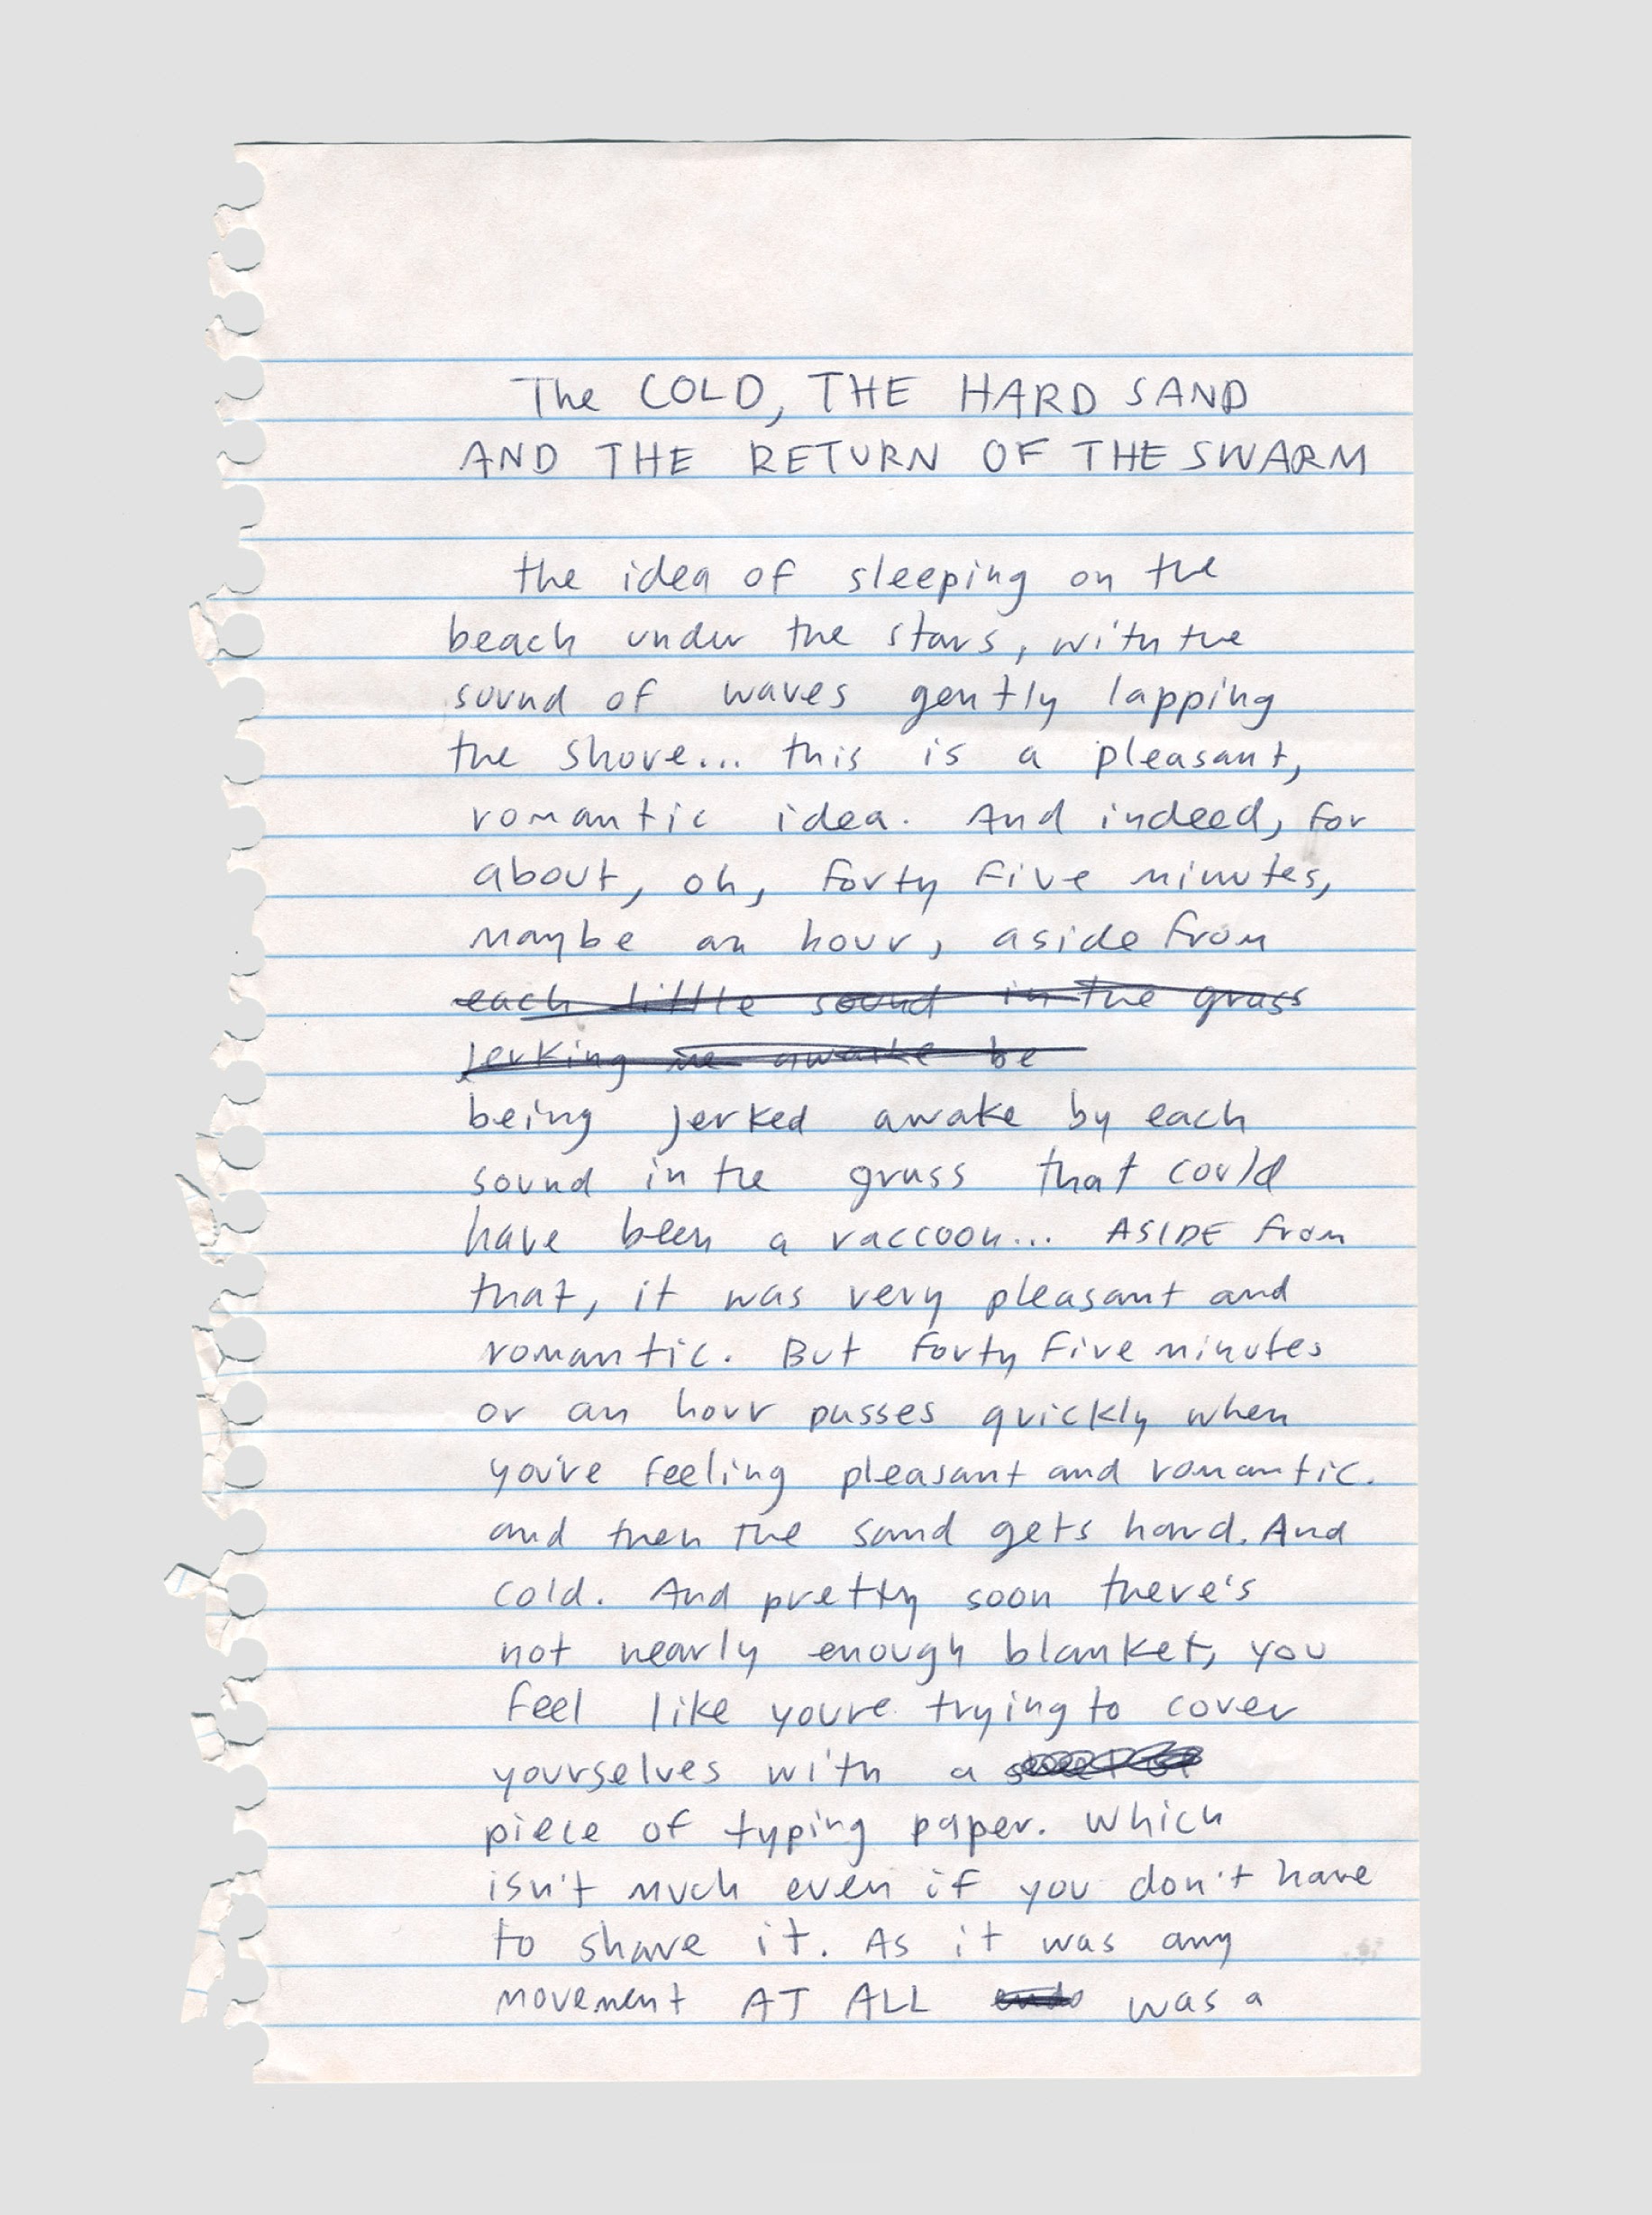 The COLD, THE HARD SAND
AND THE RETURN OF THE SWARM
the idea of sleeping on the
beach under the stars, with the
sound of waves gently lapping
the shore... this is a pleasant,
romantic idea. And indeed, for
about, oh, forty five minutes,
maybe an hour, aside from
each little sound in the grass
jerking me awake be
being jerked awake by each
sound in the grass that could
have been a raccoon... ASIDE from
that, it was very pleasant and
romantic. But forty five minutes
or an hour passes quickly when
you're feeling pleasant and romantic.
and then the sand gets hard. And
cold. And pretty soon there's
not nearly enough blanket, you
feel like youre trying to cover
yourselves with a sheet of
piece of typing paper. Which
isn't much even if you don't have
to share it. As it was any
movement AT ALL was a